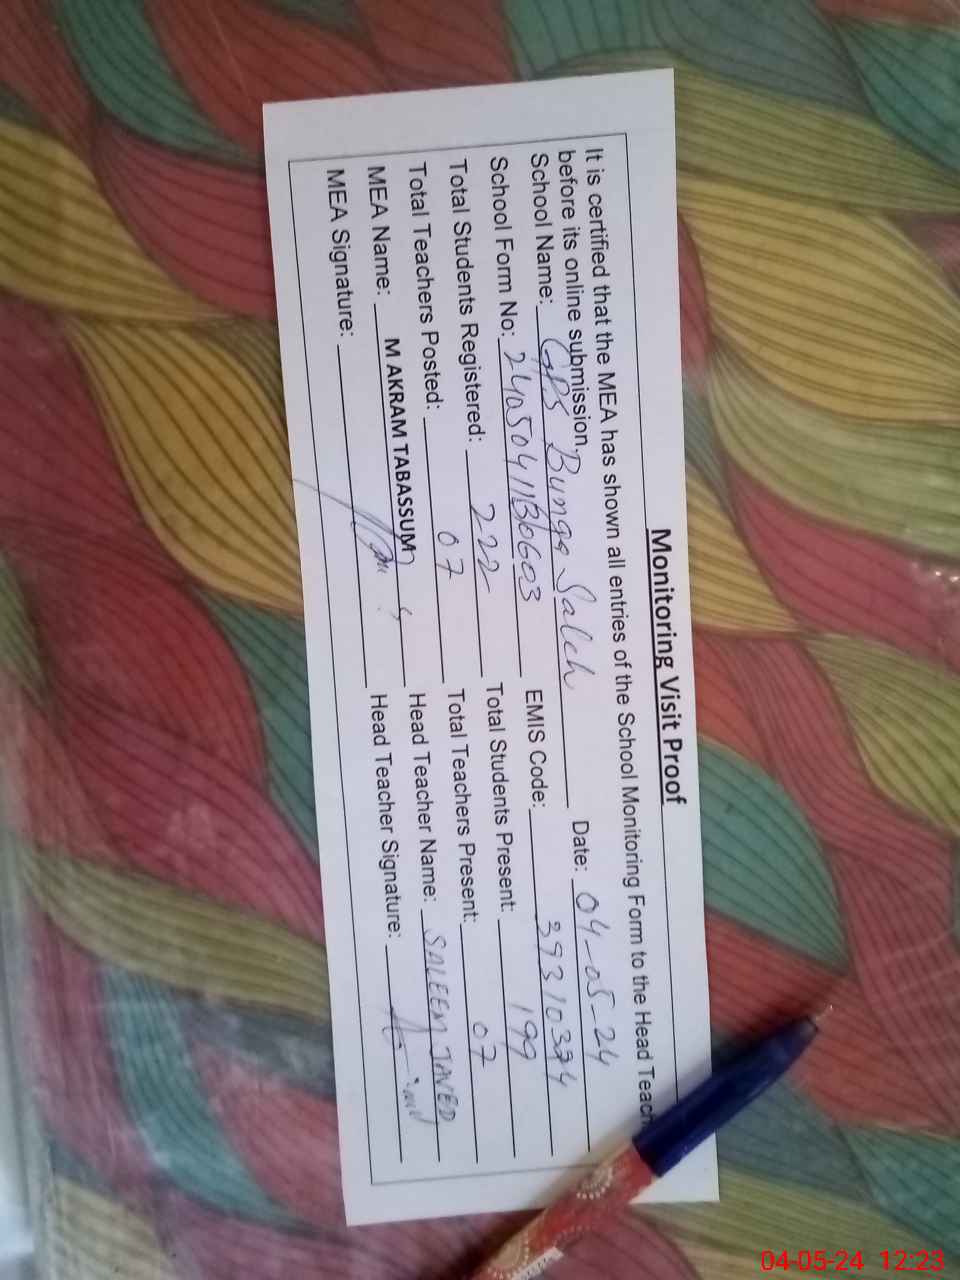 Monitoring Visit Proof
It is certified that the MEA has shown all entries of the School Monitoring Form to the Head Teach
before its online submission.
School Name: GPS Bunga Saleh Date: 04-05-24
School Form No: EMIS Code: 39310374
Total Students Registered: 222 Total Students Present: 199
Total Teachers Posted: 07 Total Teachers Present: 07
MEA Name: M AKRAM TABASSUM Head Teacher Name: SALEEM JAVED
MEA Signature: Head Teacher Signature:
04-05-24 12:23